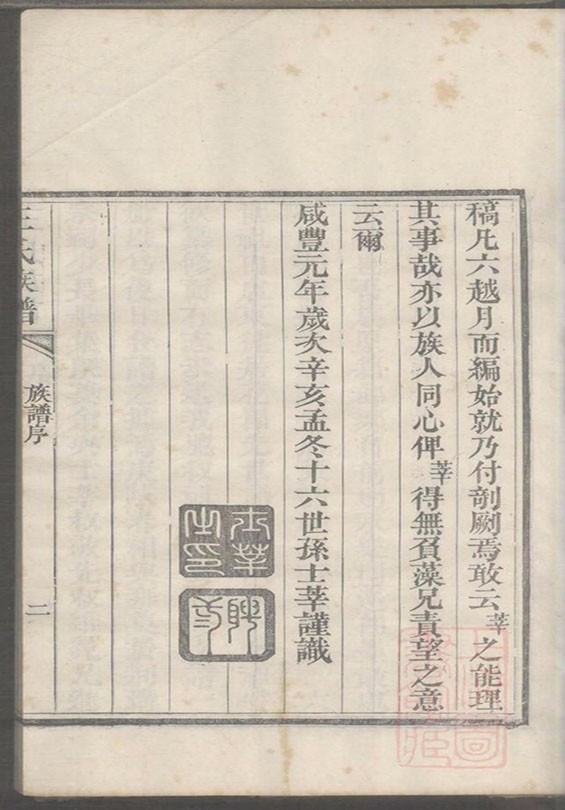 稿凡六越月而編始就乃付剞劂焉敢云莘之能理
其事哉亦以族人同心俾莘得無負藻兄責望之意
云爾
咸豐元年歲次辛亥孟冬十六世孫士莘謹識
士莘之印
王氏族譜
族譜序
二